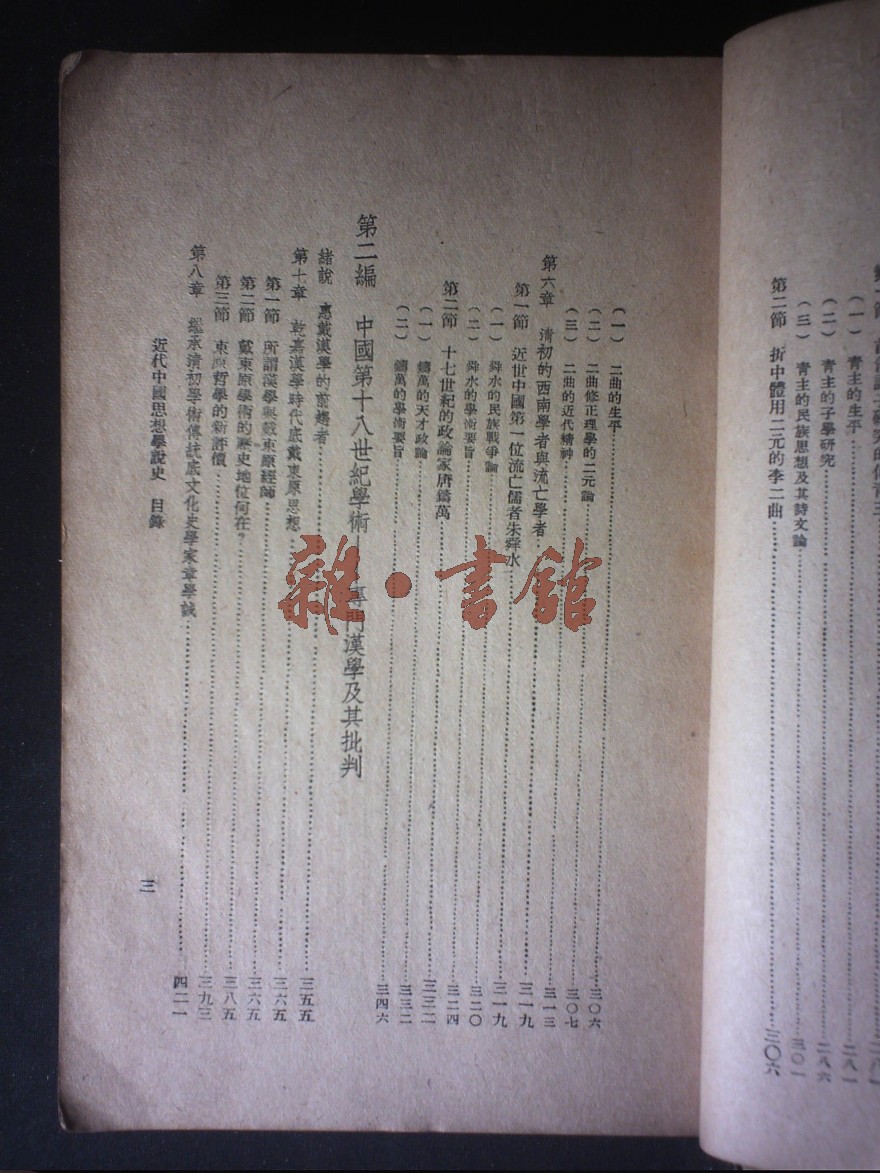 （一）　青主的生平……二八一
（二）　青主的子學研究……二八六
（三）　青主的民族思想及其詩文論……三〇一
第二節　折中體用二元的李二曲……三〇六
（一）　二曲的生平……三〇六
（二）　二曲修正理學的二元論……三〇七
（三）　二曲的近代精神……三一三
第六章　清初的西南學者與流亡學者……三一九
第一節　近世中國第一位流亡儒者朱舜水……三一九
（一）　舜水的民族戰爭論……三二〇
（二）　舜水的學術要旨……三二四
第二節　十七世紀的政論家唐鑄萬……三三二
（一）　鑄萬的天才政論……三三二
（二）　鑄萬的學術要旨……三四六
第二編　中國第十八世紀學術——專門漢學及其批判
緒說　惠戴漢學的前趨者……三五五
第七章　乾嘉漢學時代底戴東原思想……三六五
第一節　所謂漢學與戴東原經師……三六五
第二節　戴東原學術的歷史地位何在？……三八五
第三節　東原哲學的新評價……三九三
第八章　繼承清初學術傳統底文化史學家章學誠……四二一
近代中國思想學說史　目錄
三
雜·書館